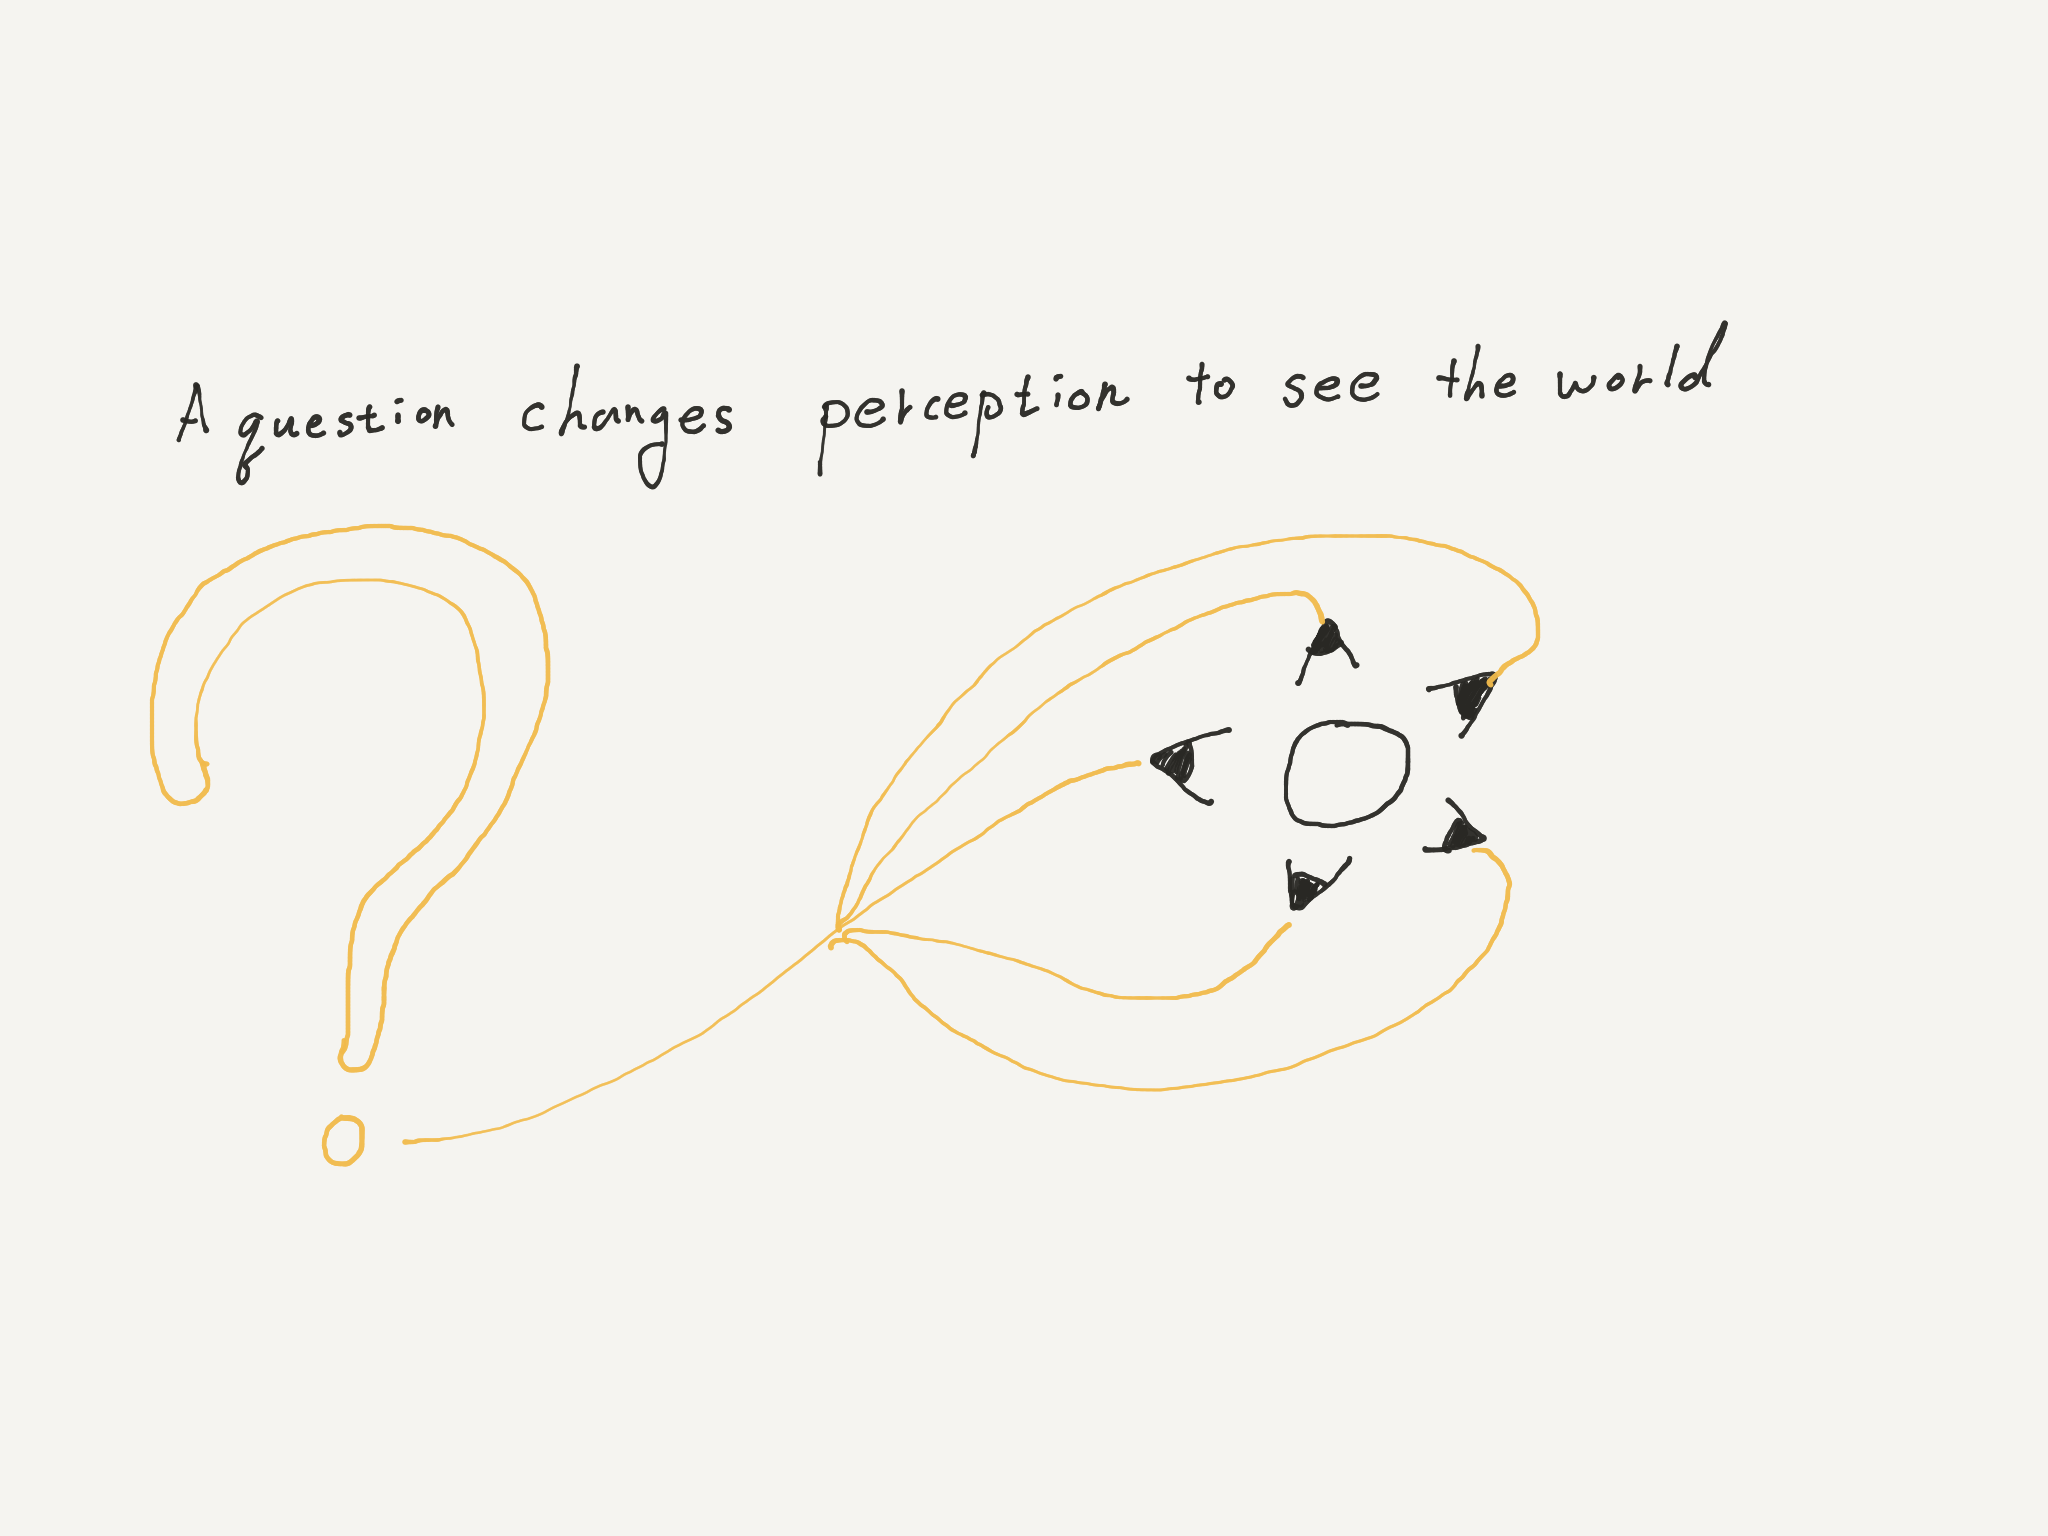 A question changes perception to see the world
?